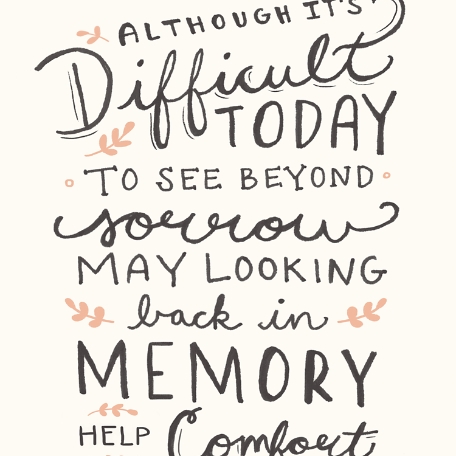 ALTHOUGH IT'S
Difficult
TODAY
TO SEE BEYOND
sorrow
MAY LOOKING
back in
MEMORY
HELP Comfort